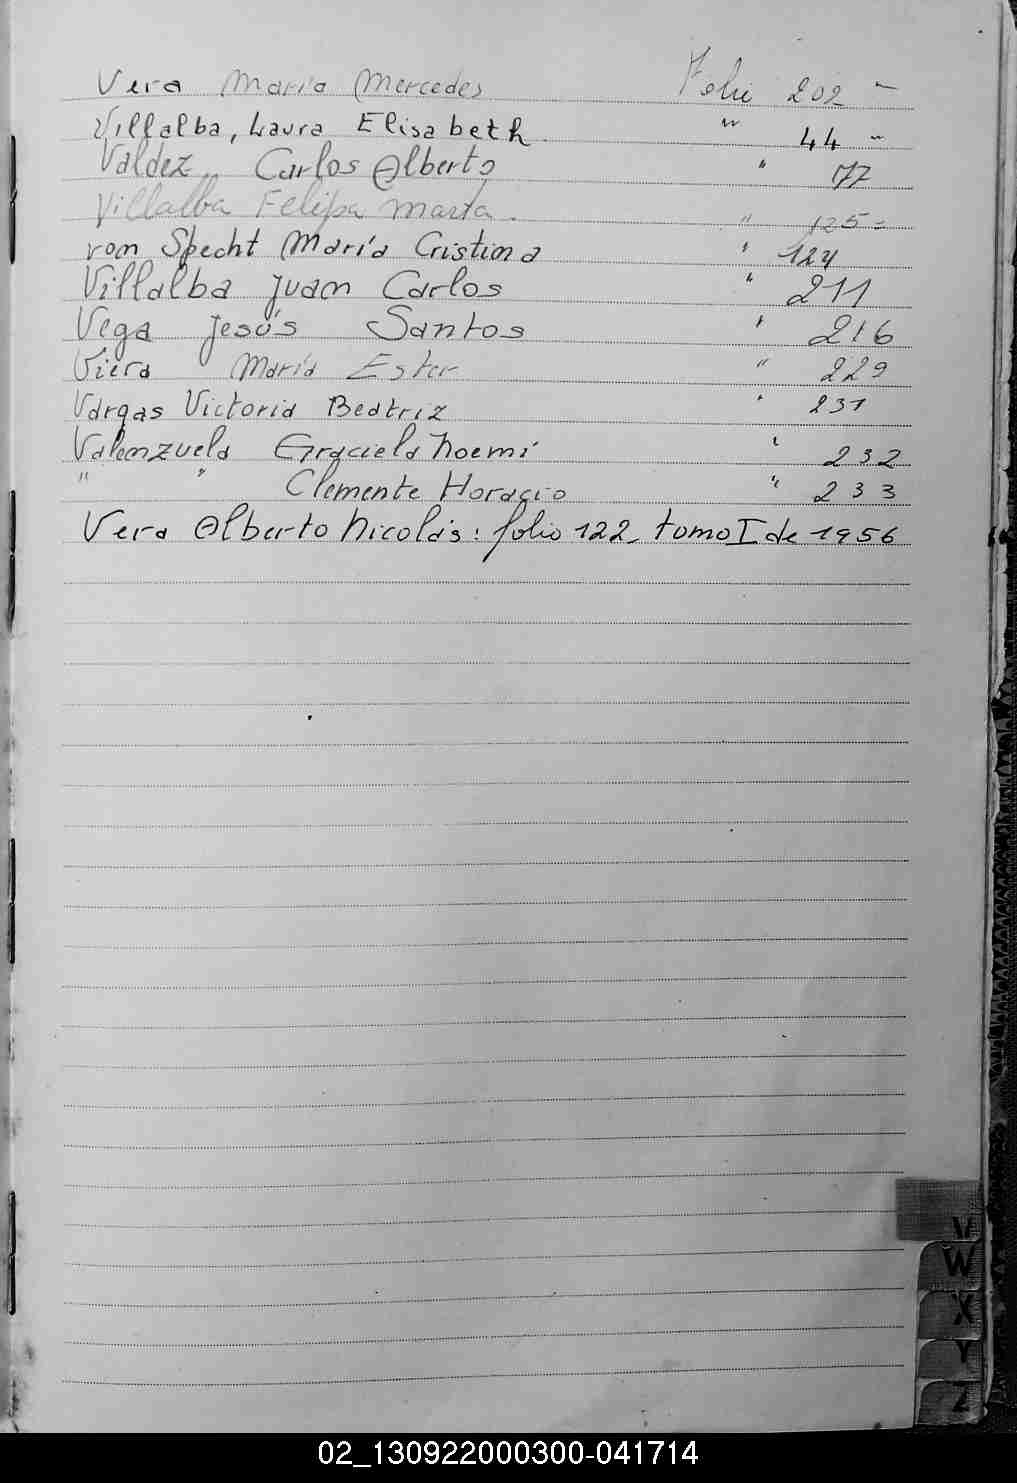 Vera María Mercedes Folio 202 -
Villalba, Laura Elisabeth " 44 -
Valdez Carlos Alberto " 77
Villalba Felipa Marta. " 125 -
von Specht María Cristina " 124
Villalba Juan Carlos " 211
Vega Jesús Santos " 216
Viera María Ester " 229
Vargas Victoria Beatriz " 231
Valenzuela Graciela Noemí " 232
" " Clemente Horacio " 233
Vera Alberto Nicolás: folio 122, tomo I de 1956
V
W
X
Y
Z
02_130922000300-041714